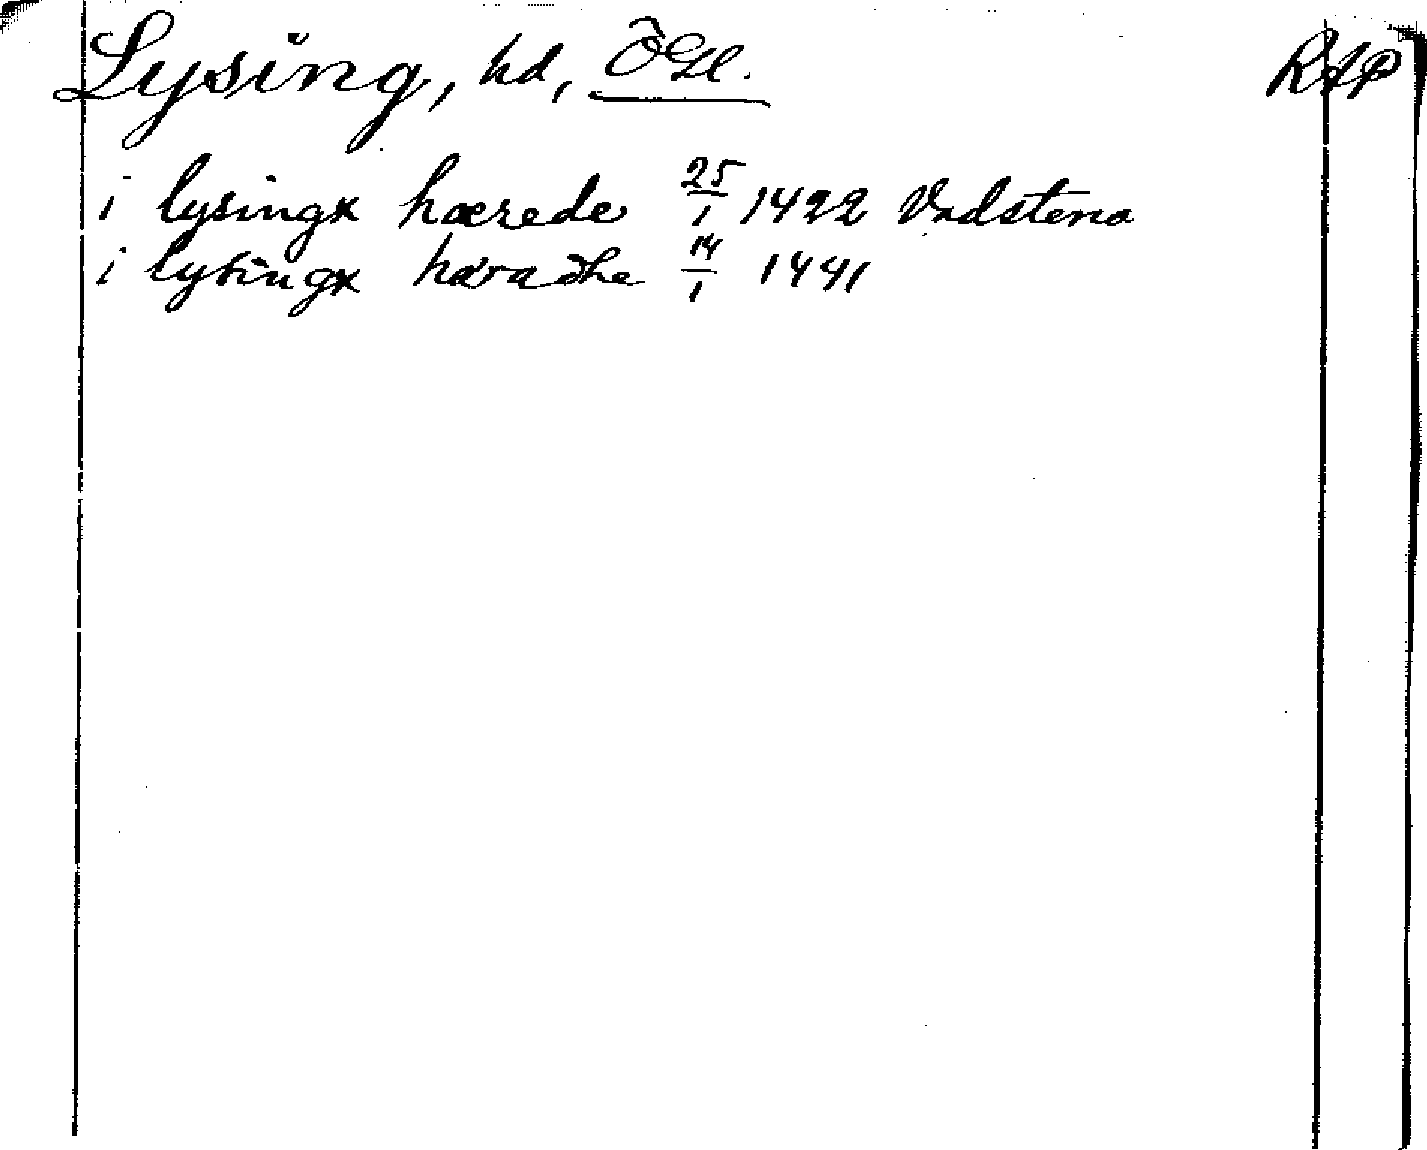 Lysing, hd, ÖGl. RAP
i lysingx hærede 25/1 1422 Vadstena
i lysingx häradhe 14/1 1441